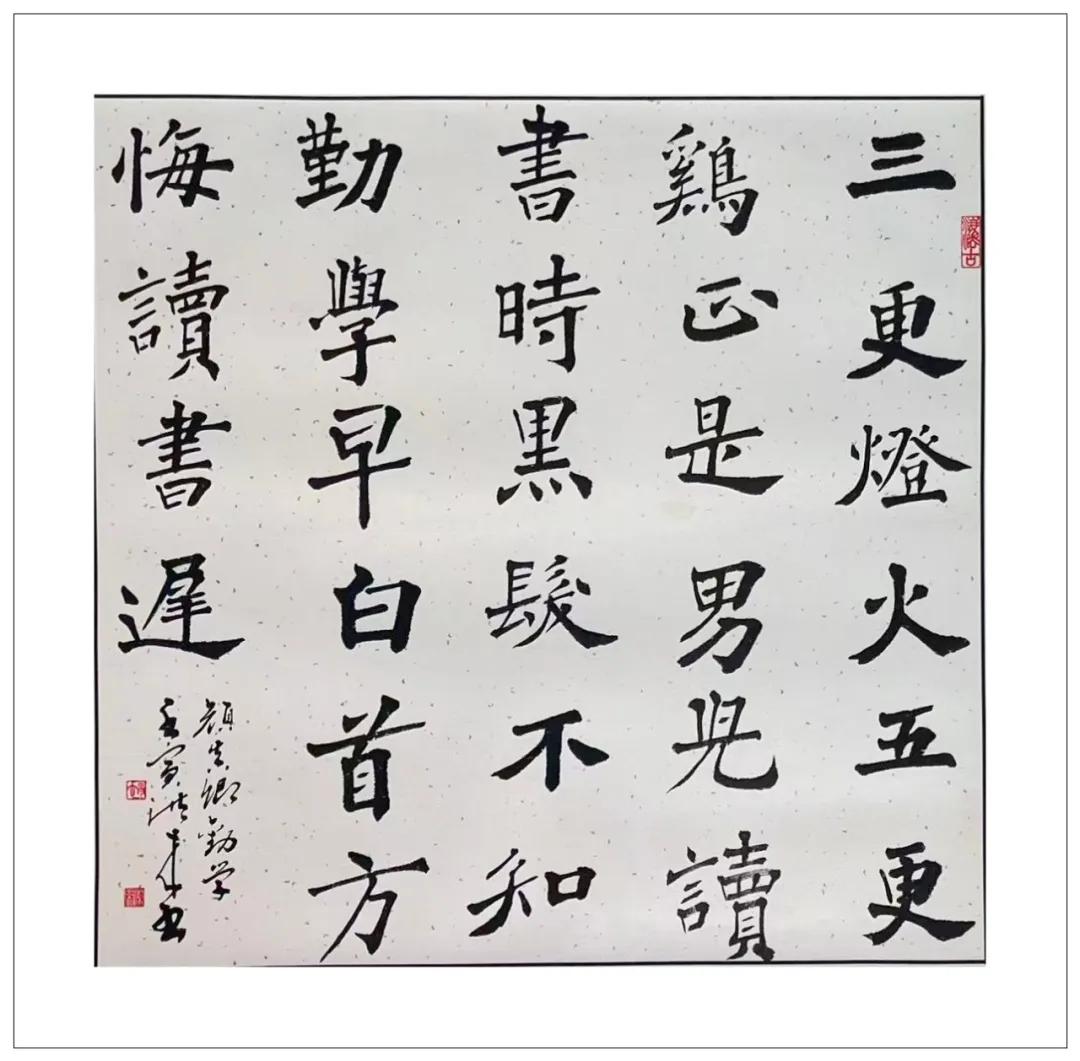 三更燈火五更
鷄正是男兒讀
書時黑髮不知
勤學早白首方
悔讀書遲
顔真卿勸学
壬寅
书